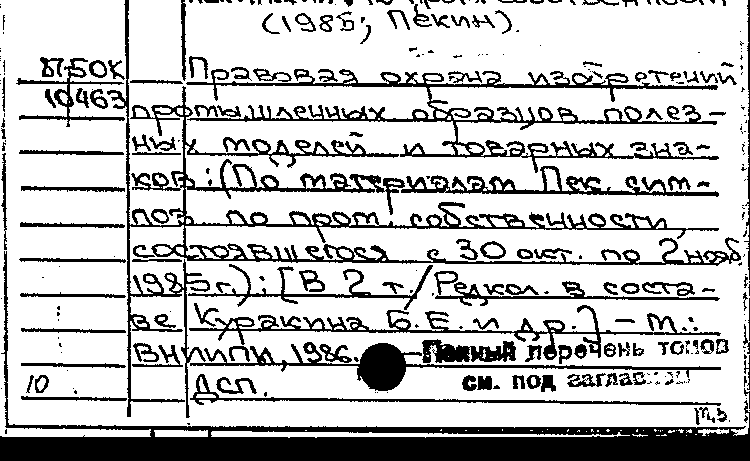 (1985; Пекин).
Правовая охрана изобретений
10463
промышленных образцов полез-
ных моделей и товарных зна-
ков: (По материалам Пек. сим-
поз. по пром. собственности,
состоявшегося с 30 окт. по 2 нояб.
1985г.): [В 2 т. / Редкол. в соста-
ве Куракина Б.Е. и др.]. - М.:
ВНИИПИ, 1986. - Полный перечень томов
10 ДСП. см. под заглавием